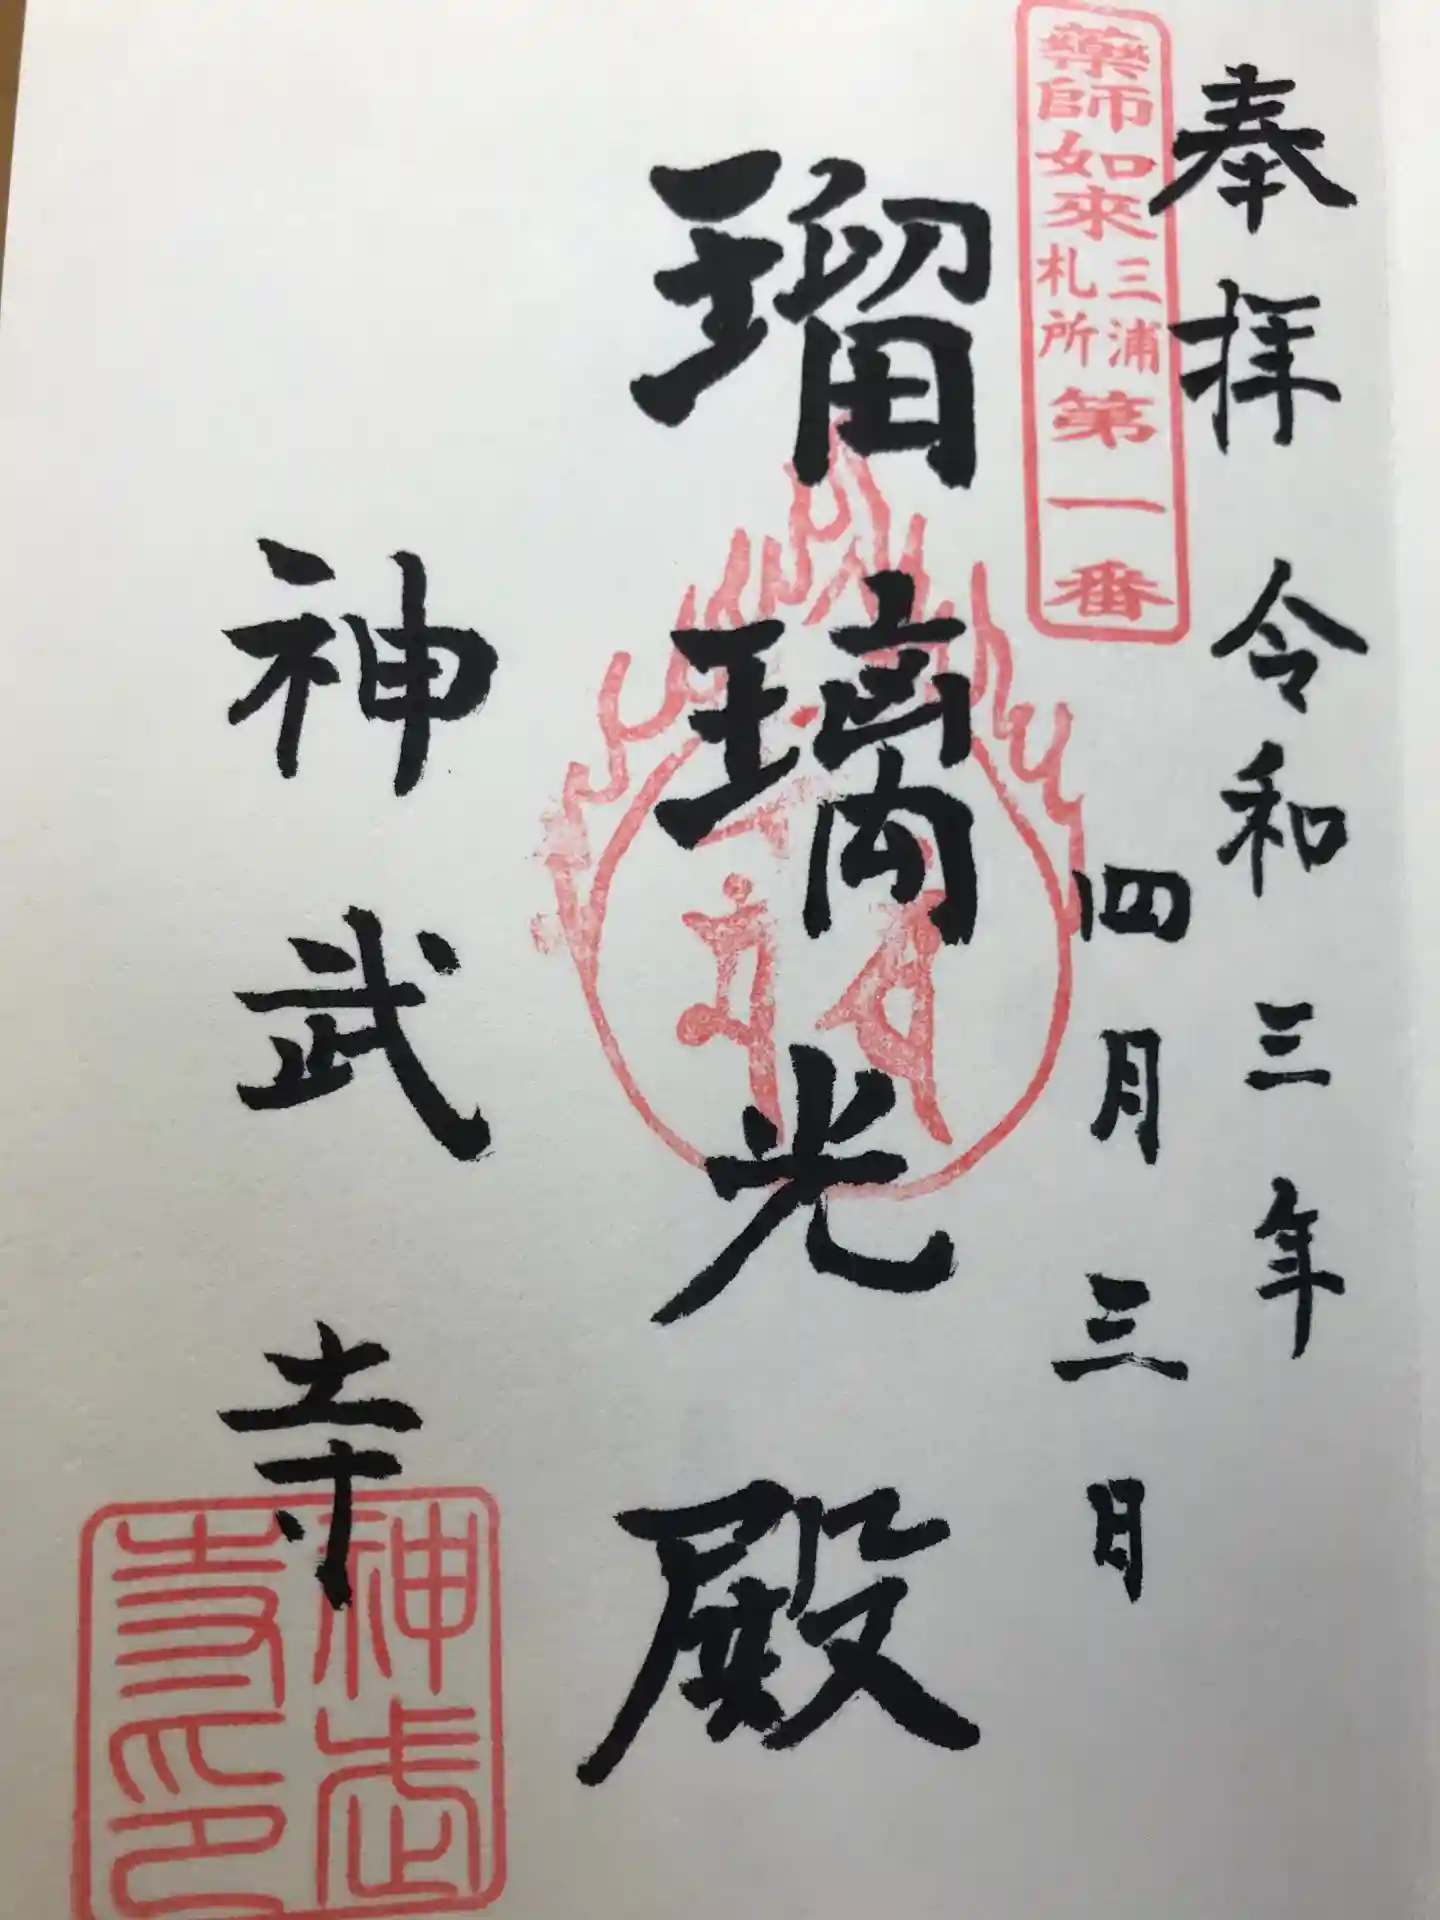 奉拝 令和三年
四月三日
藥師如來三浦札所第一番
瑠璃光殿
神武寺
神武
寺印